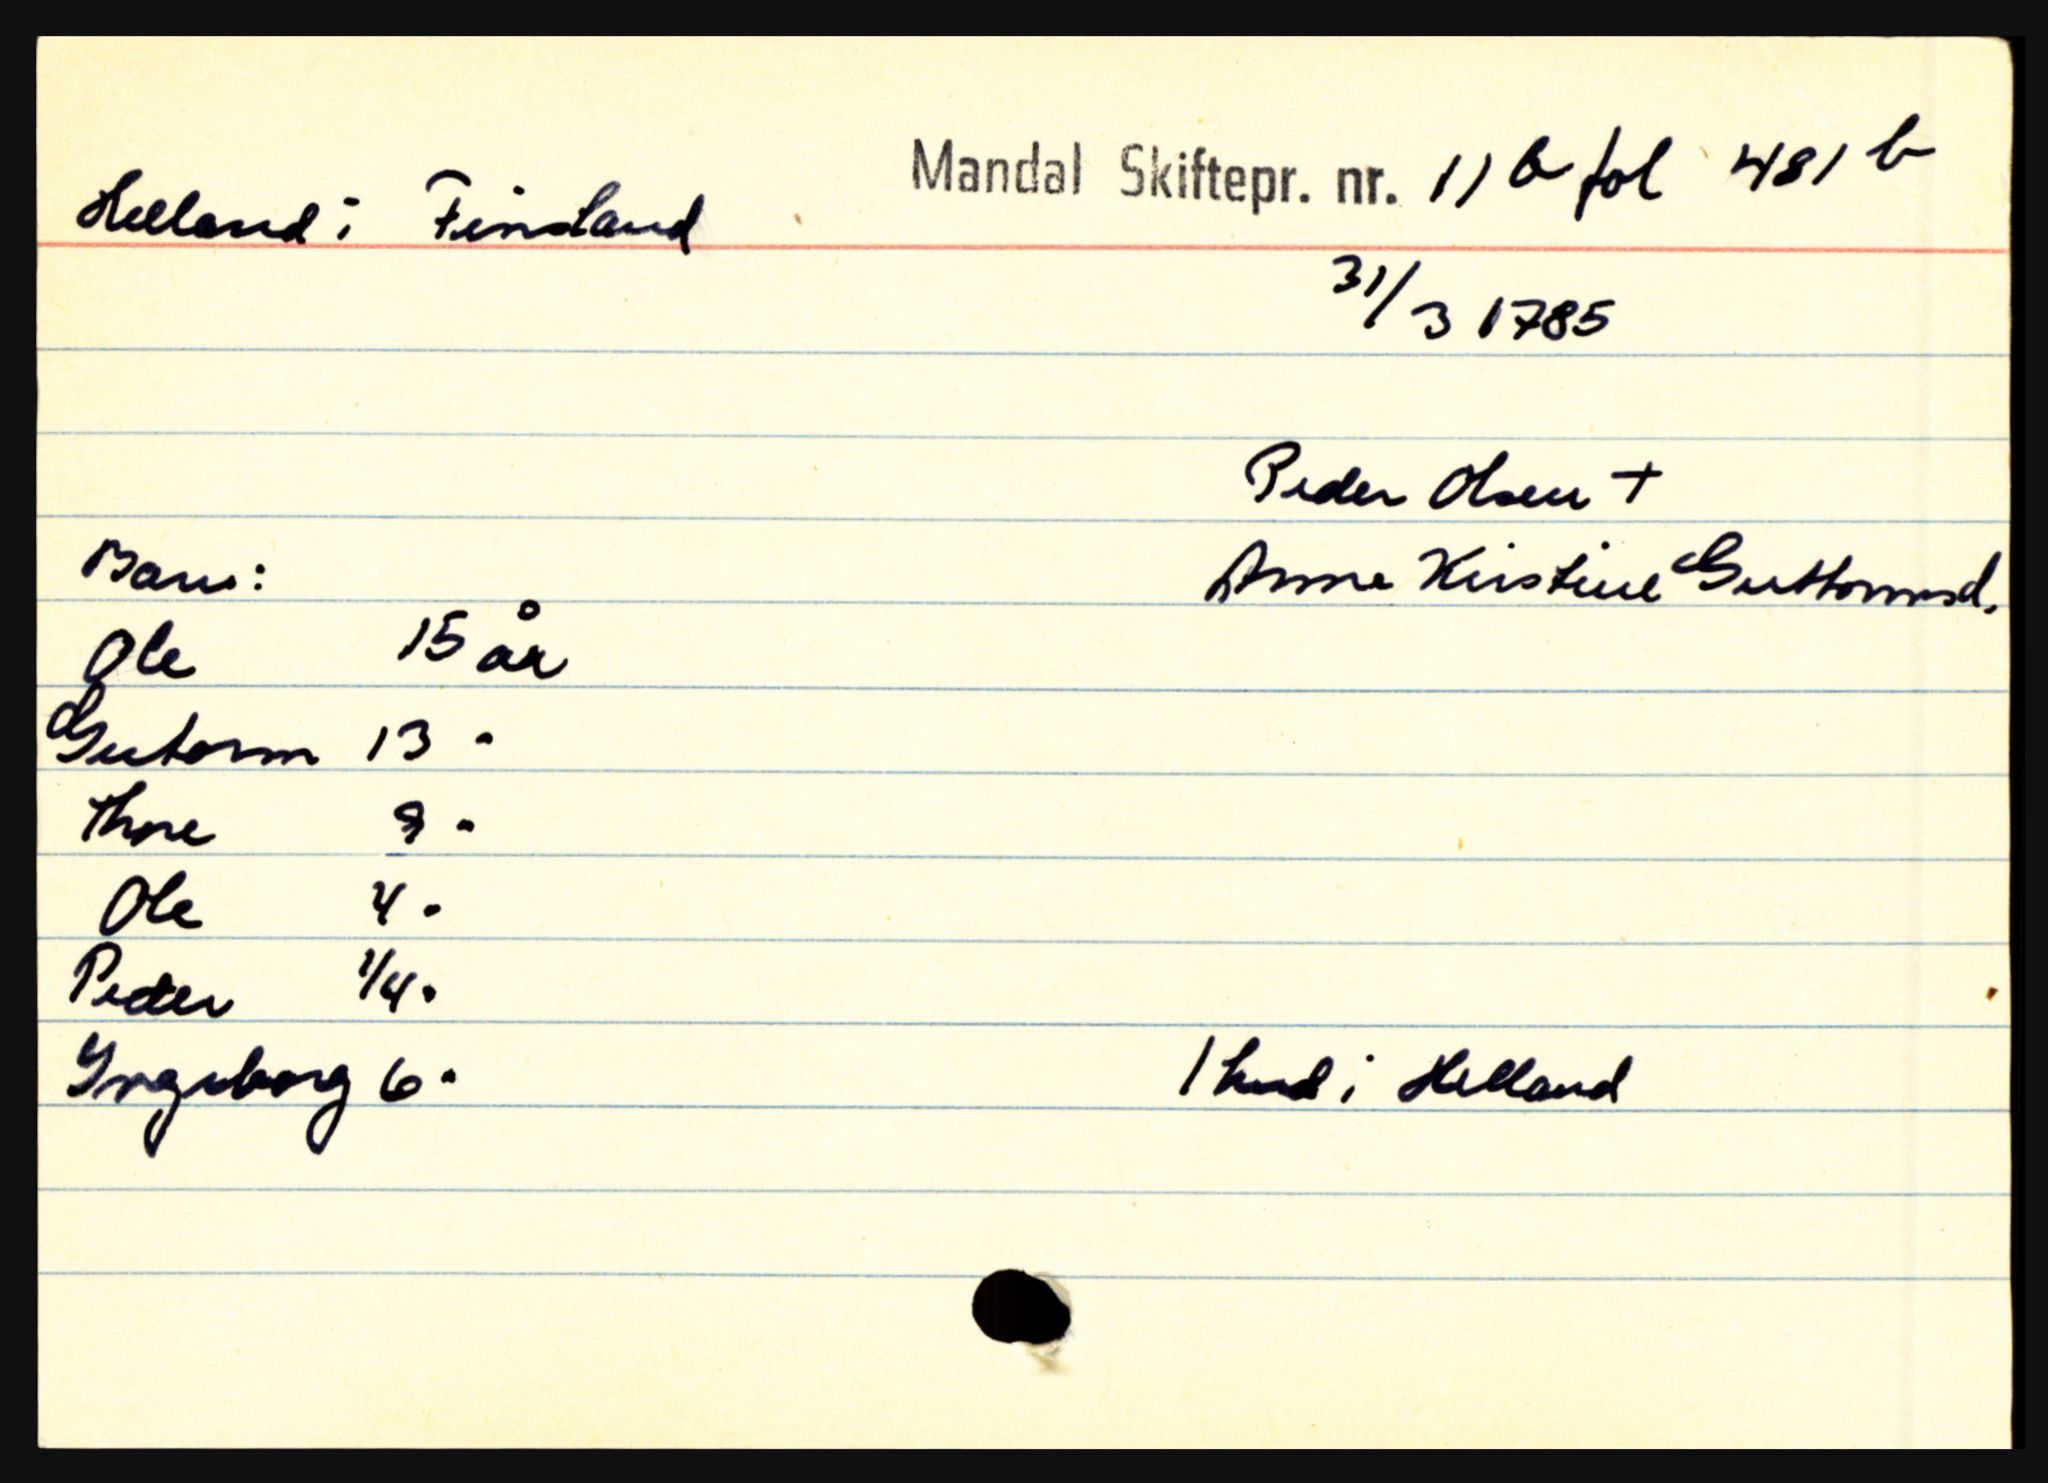 Mandal Skiftepr. nr. 11 b fol 481 b
Helland i Finsland
31/3 1785
Peder Olsen +
Barn:
Anne Kirstine Guttormsd.
Ole 15 år
Gutorm 13 "
Thore 9 "
Ole 4 "
Peder 1/4 "
Yngeborg 6 "
1 hud i Helland